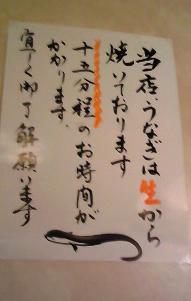 当店、うなぎは生から
焼いております
十五分程のお時間が
かかります。
宜しく御了解願います